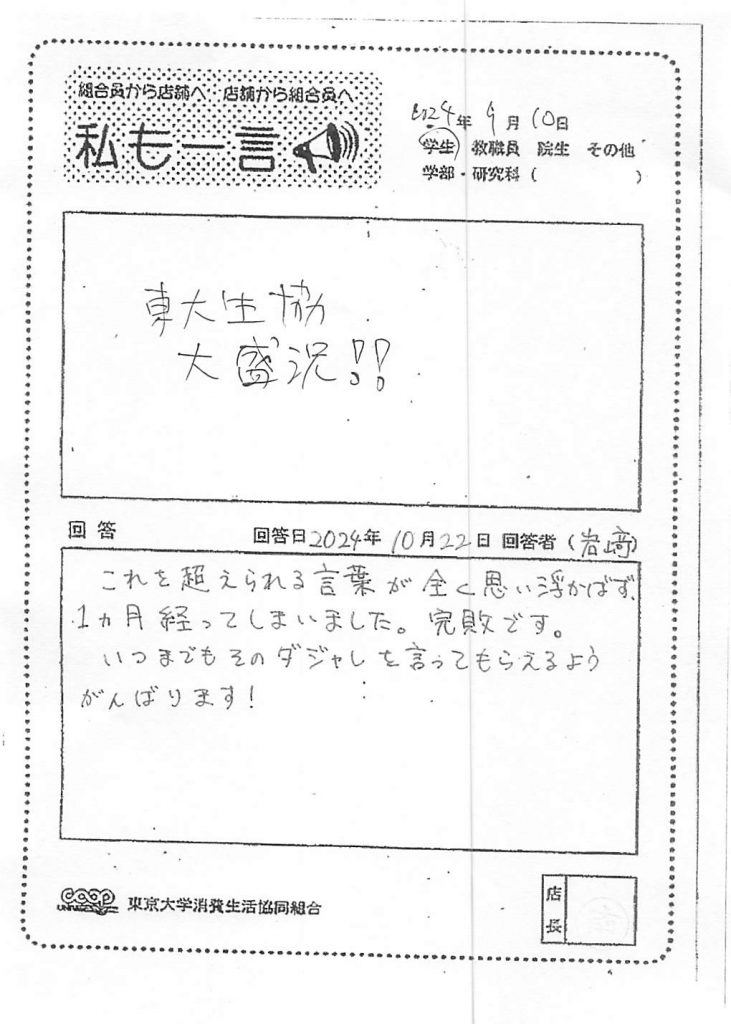 組合員から店舗へ 店舗から組合員へ
私も一言
2024年 9月 10日
学生 教職員 院生 その他
学部・研究科（　　　　　）
東大生協
大盛況!!
回答 回答日2024年 10月22日 回答者（岩﨑）
これを超えられる言葉が全く思い浮かばず、
1ヵ月経ってしまいました。完敗です。
いつまでもそのダジャレを言ってもらえるよう
がんばります!
coop 東京大学消費生活協同組合
UNIVERSITY
店長